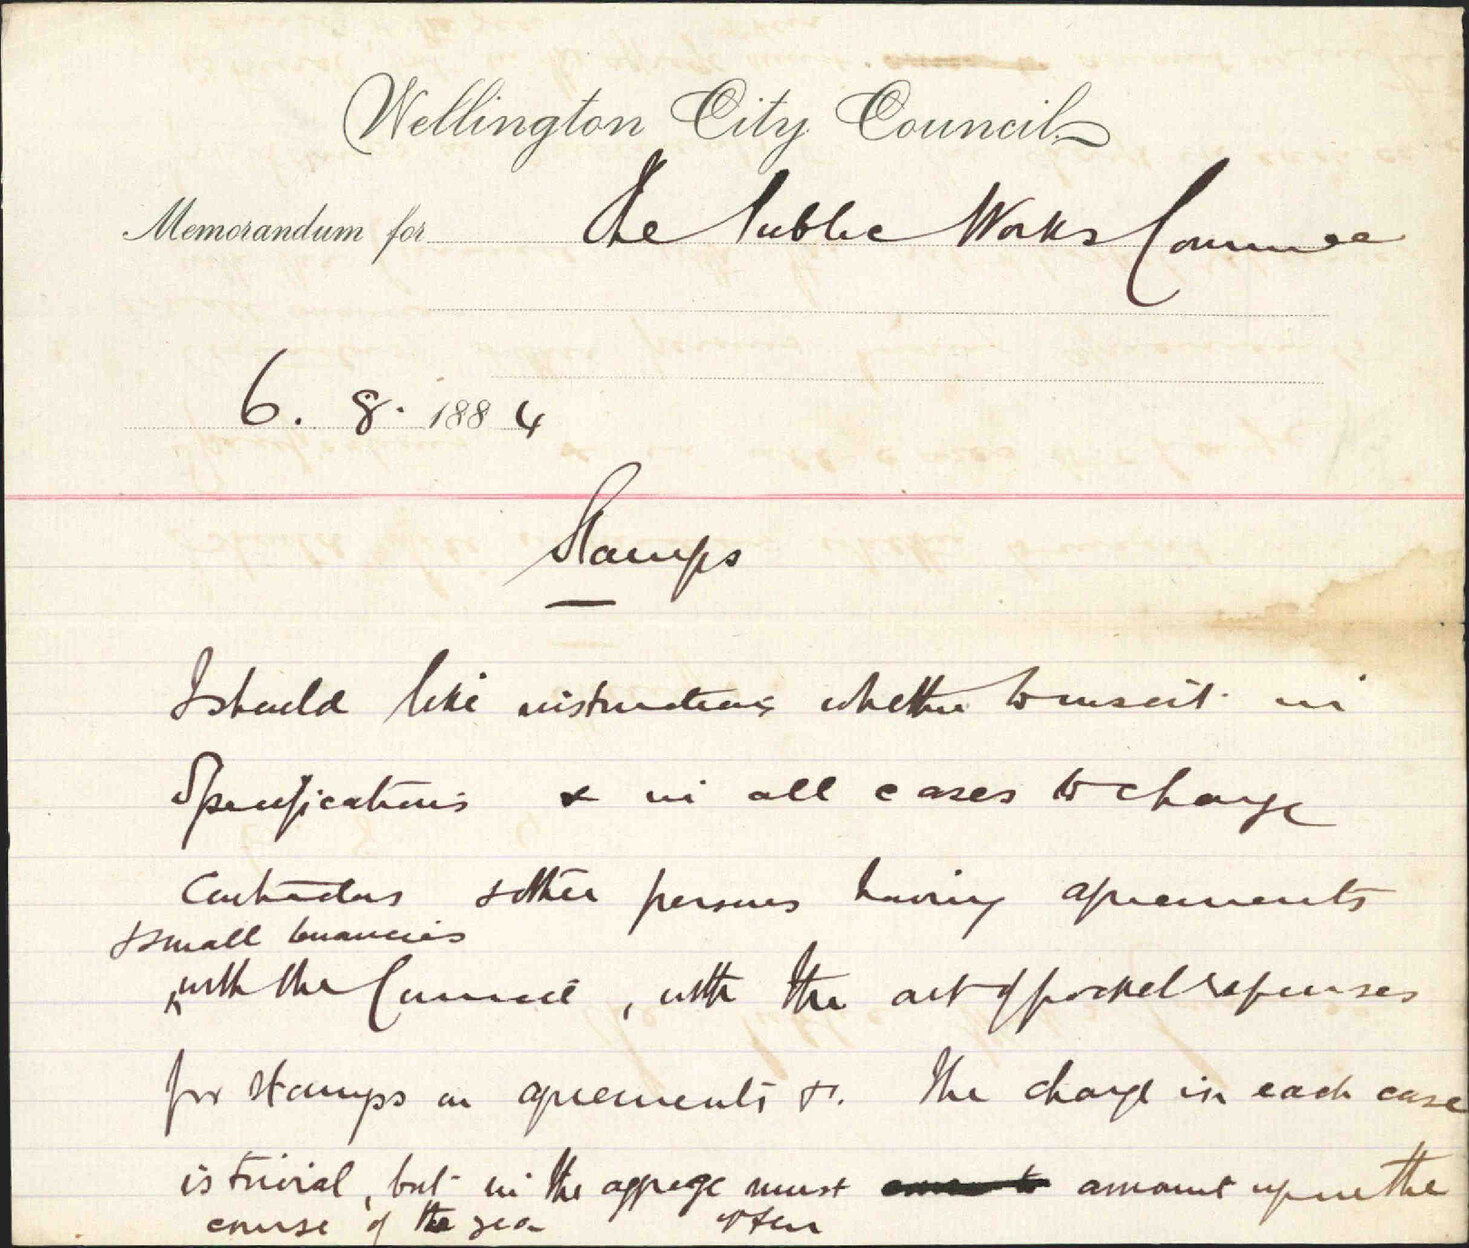 Wellington City Council
Memorandum for The Public Works Commee
6. 8. 1884
Stamps
I should like instructions whether to insert in
Specifications & in all cases to charge
Contractors & other persons having agreements
& small tenancies
with the Council, with the out of pocket expenses
for stamps on agreements &c. The charge in each case
is trivial, but in the aggregate must amount up in the
course of the year